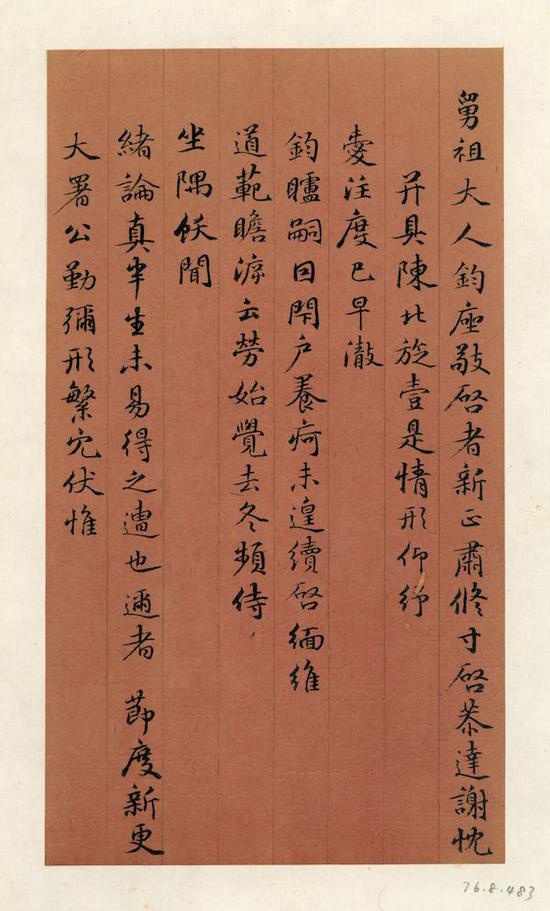 舅祖大人鈞座敬啓者新正肅修寸啓恭達謝忱
并具陳北旋壹是情形仰紓
愛注度已早澈
鈞矑嗣因閉戶養疴未遑續啓緬維
道範瞻溯云勞始覺去冬頻侍
坐隅飫聞
緒論真半生未易得之遭也邇者 節度新更
大署公勤彌形繁冗伏惟
76.8.483